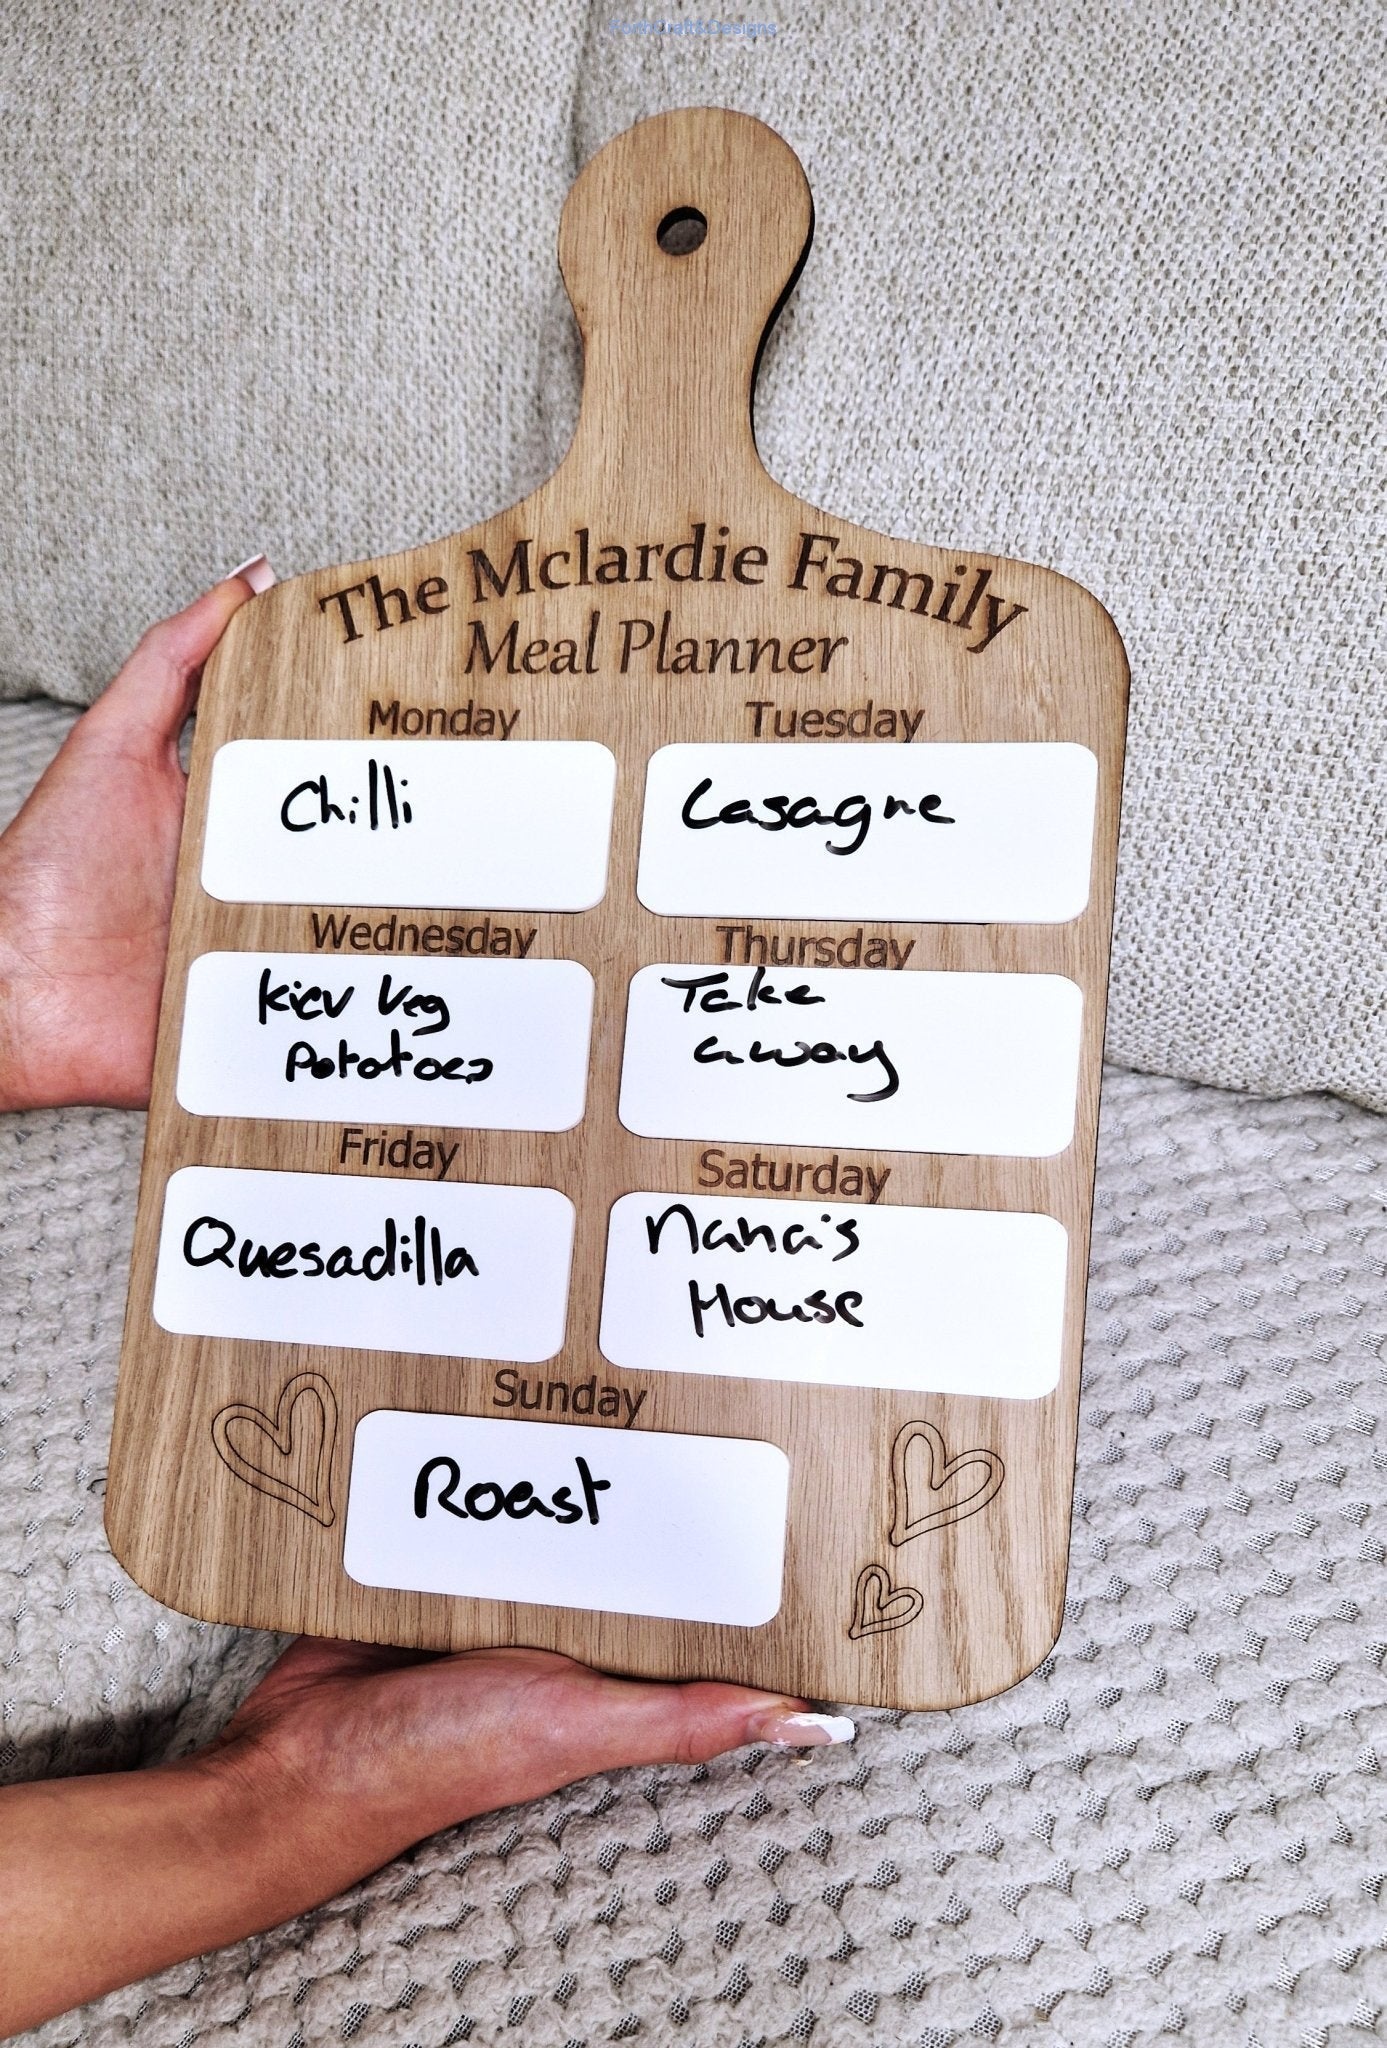 ForthCraft&Designs
The Mclardie Family
Meal Planner
Monday
Chilli
Tuesday
Lasagne
Wednesday
Kiev Veg
Potatoes
Thursday
Take
away
Friday
Quesadilla
Saturday
Nana's
House
Sunday
Roast